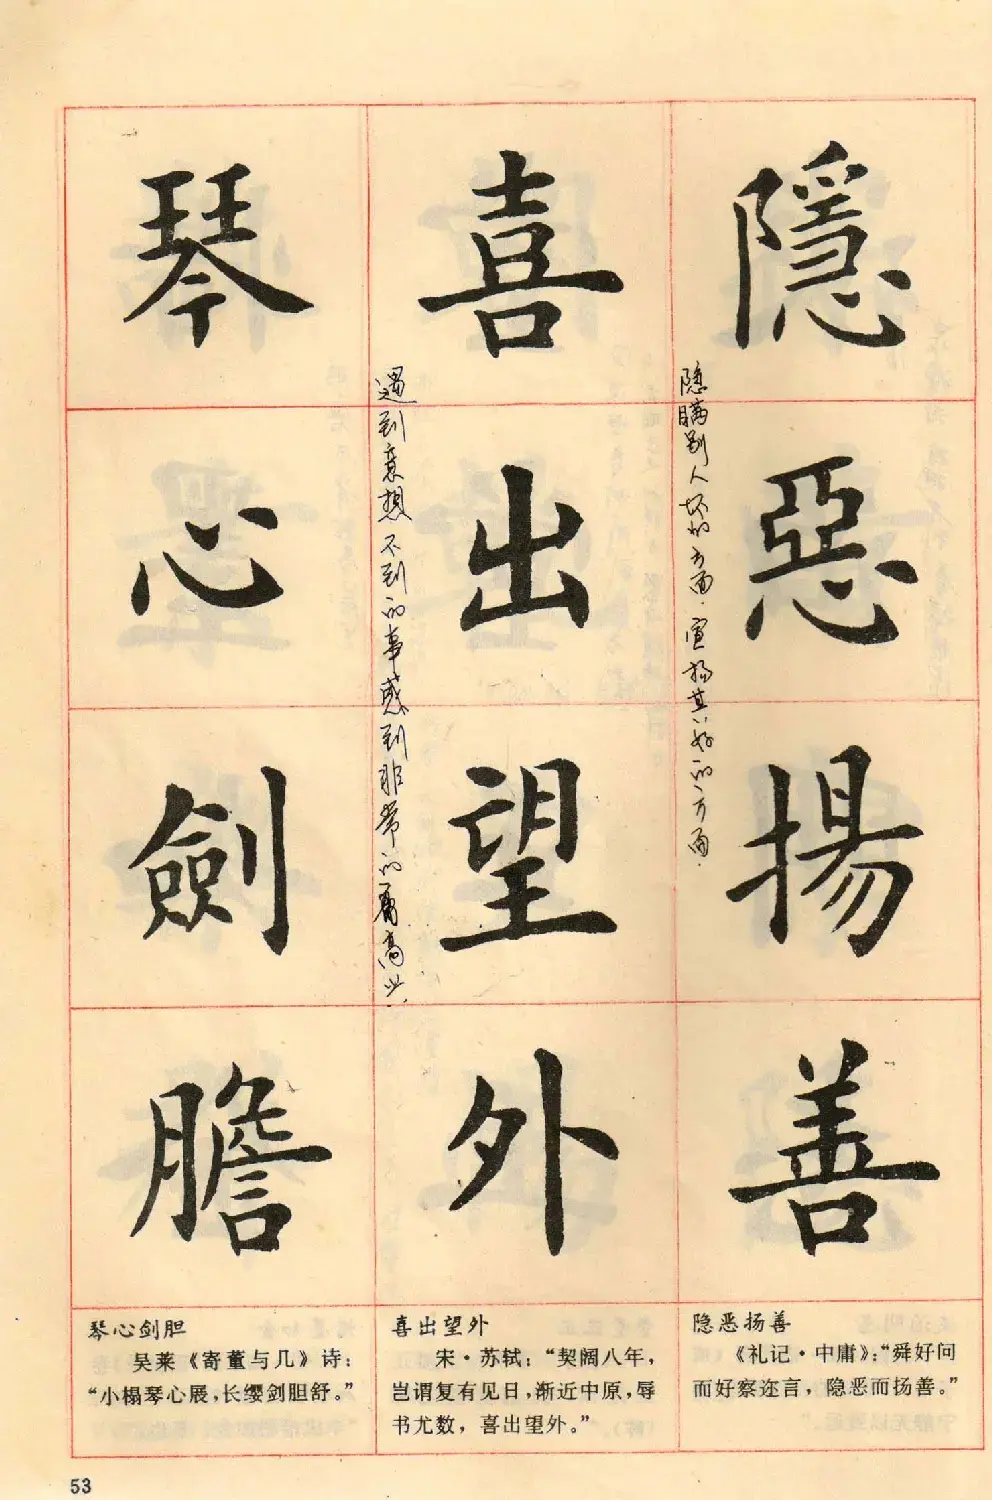 隱惡揚善
隐瞒别人坏的方面.宣扬其好的方面.
喜出望外
遇到意想不到的事感到非常的高兴
琴心劍膽
隐恶扬善
《礼记·中庸》:“舜好问
而好察迩言，隐恶而扬善。”
喜出望外
宋·苏轼：“契阔八年，
岂谓复有见日，渐近中原，辱
书尤数，喜出望外。”
琴心剑胆
吴莱《寄董与几》诗：
“小榻琴心展，长缨剑胆舒。”
53